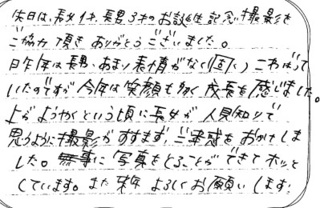 本日は、長女1才、長男3才のお誕生記念撮影を
ご協力頂き ありがとうございました。
昨年は長男、あまり表情がなく(泣) こわばって
いたのですが 今年は笑顔も多く 成長を感じました。
上がようやくという頃に長女が人見知りで
思うように撮影がすすまず、ご迷惑をおかけしま
した。無事に写真をとることができてホッと
しています。また 来年 よろしくお願いします。